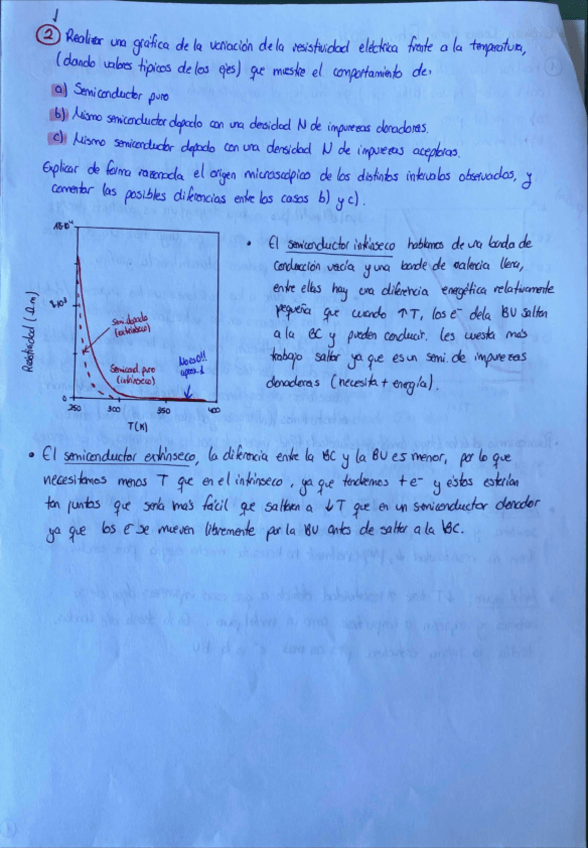 2 Realizar una gráfica de la variación de la resistividad eléctrica frente a la temperatura,
(dando valores típicos de los ejes) que muestre el comportamiento de:
a) Semiconductor puro
b) Mismo semiconductor dopado con una densidad N de impurezas donadoras.
c) Mismo semiconductor dopado con una densidad N de impurezas aceptoras.
Explicar de forma razonada el origen microscópico de los distintos intervalos observados, y
comentar las posibles diferencias entre los casos b) y c).
Resistividad (Ω.m)
0
250
300
350
400
T(K)
Semi.dopado
(extrínseco)
Semicond. puro
(intrínseco)
• El semiconductor intrínseco hablamos de una banda de
conducción vacía y una banda de valencia llena,
entre ellas hay una diferencia energética relativamente
pequeña que cuando ↑T, los e⁻ de la BV saltan
a la BC y pueden conducir. Les cuesta más
trabajo saltar ya que es un semi. de impurezas
donadoras (necesita + energía).
• El semiconductor extrínseco, la diferencia entre la BC y la BV es menor, por lo que
necesitamos menos T que en el intrínseco, ya que tendremos + e⁻ y éstos estarían
tan juntos que sería más fácil que saltaran a ↓T que en un semiconductor donador
ya que los e⁻ se mueven libremente por la BV antes de saltar a la BC.